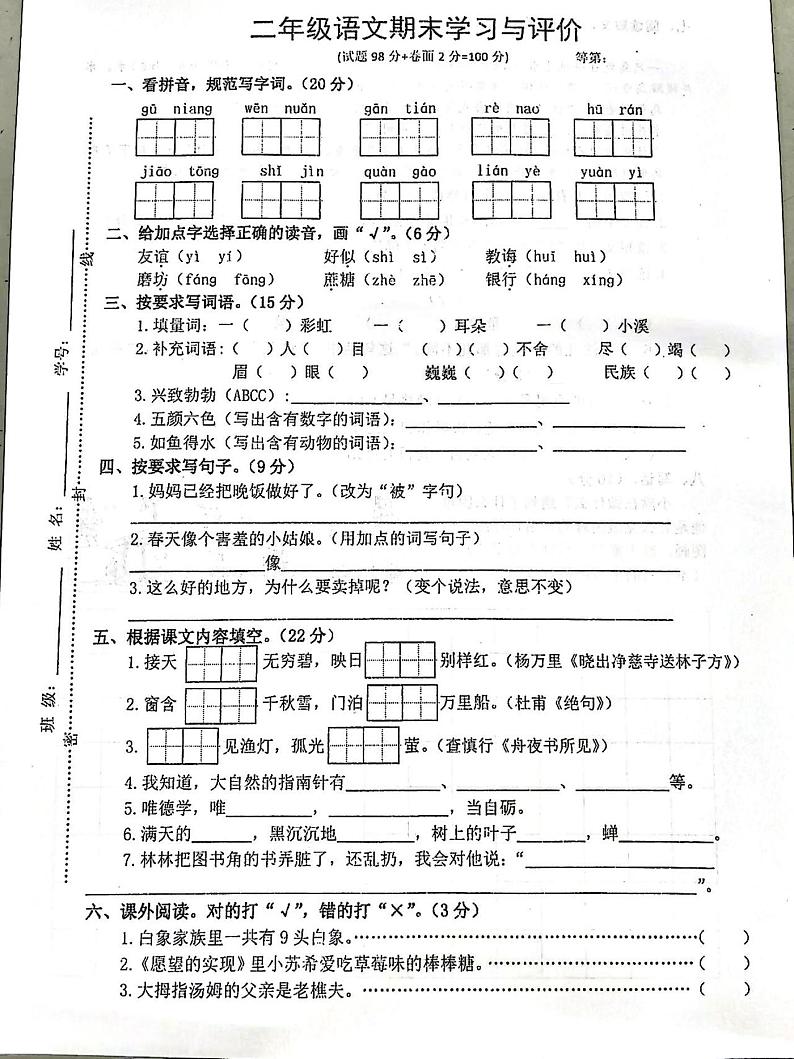 二年级语文期末学习与评价
(试题98分+卷面2分=100分) 等第:
一、看拼音，规范写字词。(20分)
gū niang wēn nuǎn gān tián rè nao hū rán
jiāo tōng shī jìn quàn gào lián yè yuàn yì
二、给加点字选择正确的读音，画“√”。(6分)
友谊(yì yí) 好似(shì sì) 教诲(huī huì)
磨坊(fáng fōng) 蔗糖(zhè zhē) 银行(háng xíng)
三、按要求写词语。(15分)
1.填量词：一( )彩虹 一( )耳朵 一( )小溪
2.补充词语：( )人( )目 ( )( )不舍 尽( )竭( )
眉( )眼( ) 巍巍( )( ) 民族( )( )
3.兴致勃勃(ABCC)：____________、____________
4.五颜六色(写出含有数字的词语)：____________、____________
5.如鱼得水(写出含有动物的词语)：____________、____________
四、按要求写句子。(9分)
1.妈妈已经把晚饭做好了。(改为“被”字句)
2.春天像个害羞的小姑娘。(用加点的词写句子)
____________像____________
3.这么好的地方，为什么要卖掉呢？(变个说法，意思不变)
五、根据课文内容填空。(22分)
1.接天 无穷碧，映日 别样红。(杨万里《晓出净慈寺送林子方》)
2.窗含 千秋雪，门泊 万里船。(杜甫《绝句》)
3. 见渔灯，孤光 萤。(查慎行《舟夜书所见》)
4.我知道，大自然的指南针有__________、__________、__________等。
5.唯德学，唯________，____________，当自砺。
6.满天的______，黑沉沉地________，树上的叶子______，蝉________。
7.林林把图书角的书弄脏了，还乱扔，我会对他说：“____________
____________”。
六、课外阅读。对的打“√”，错的打“×”。(3分)
1.白象家族里一共有9头白象。…………………………( )
2.《愿望的实现》里小苏希爱吃草莓味的棒棒糖。………………( )
3.大拇指汤姆的父亲是老樵夫。…………………………( )
班级：________ 姓名：________ 学号：________
密 封 线